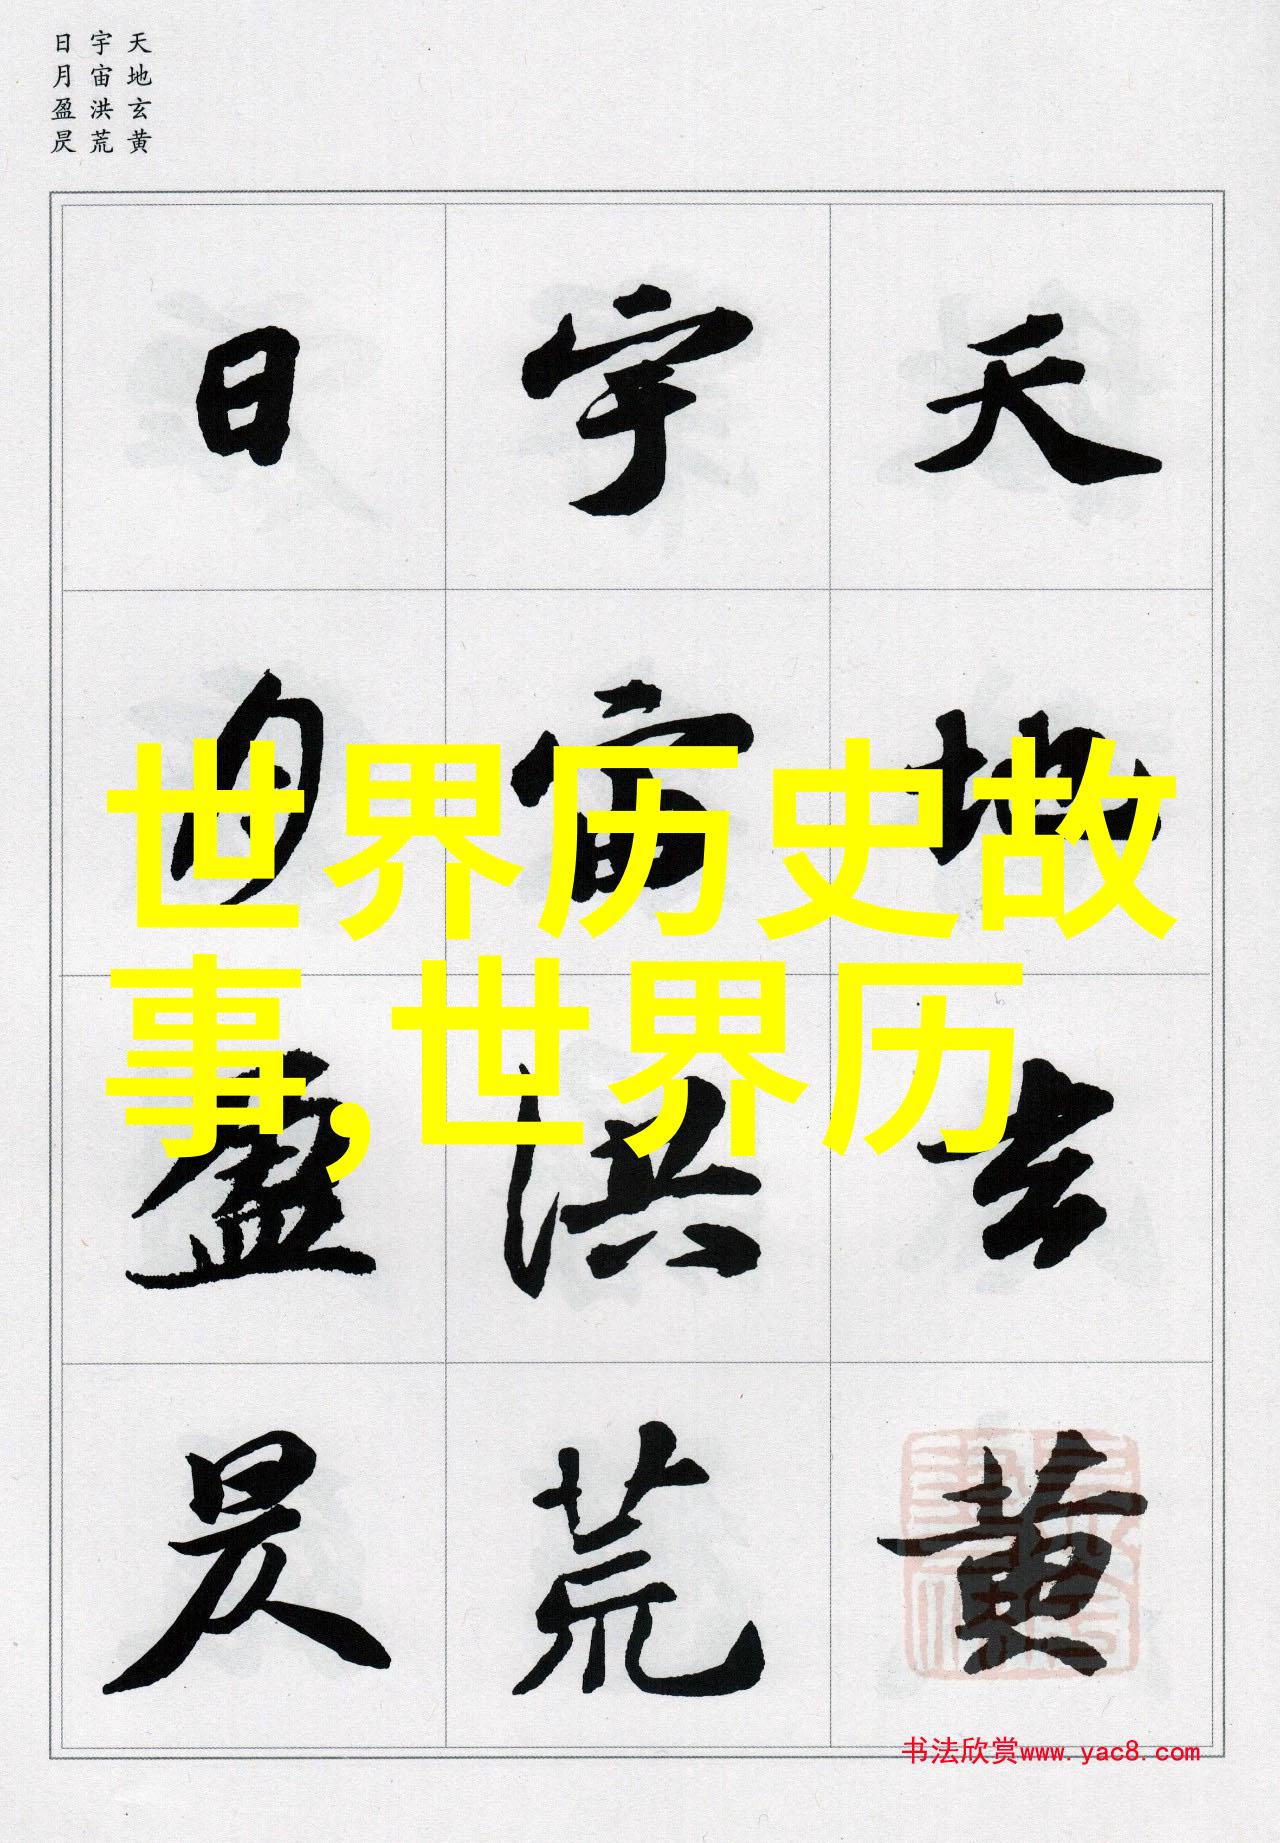 天地玄黄
宇宙洪荒
日月盈昃
天地玄黄
宇宙洪荒
日月盈昃
世界历史故
事,世界历
书法欣赏www.yac8.com